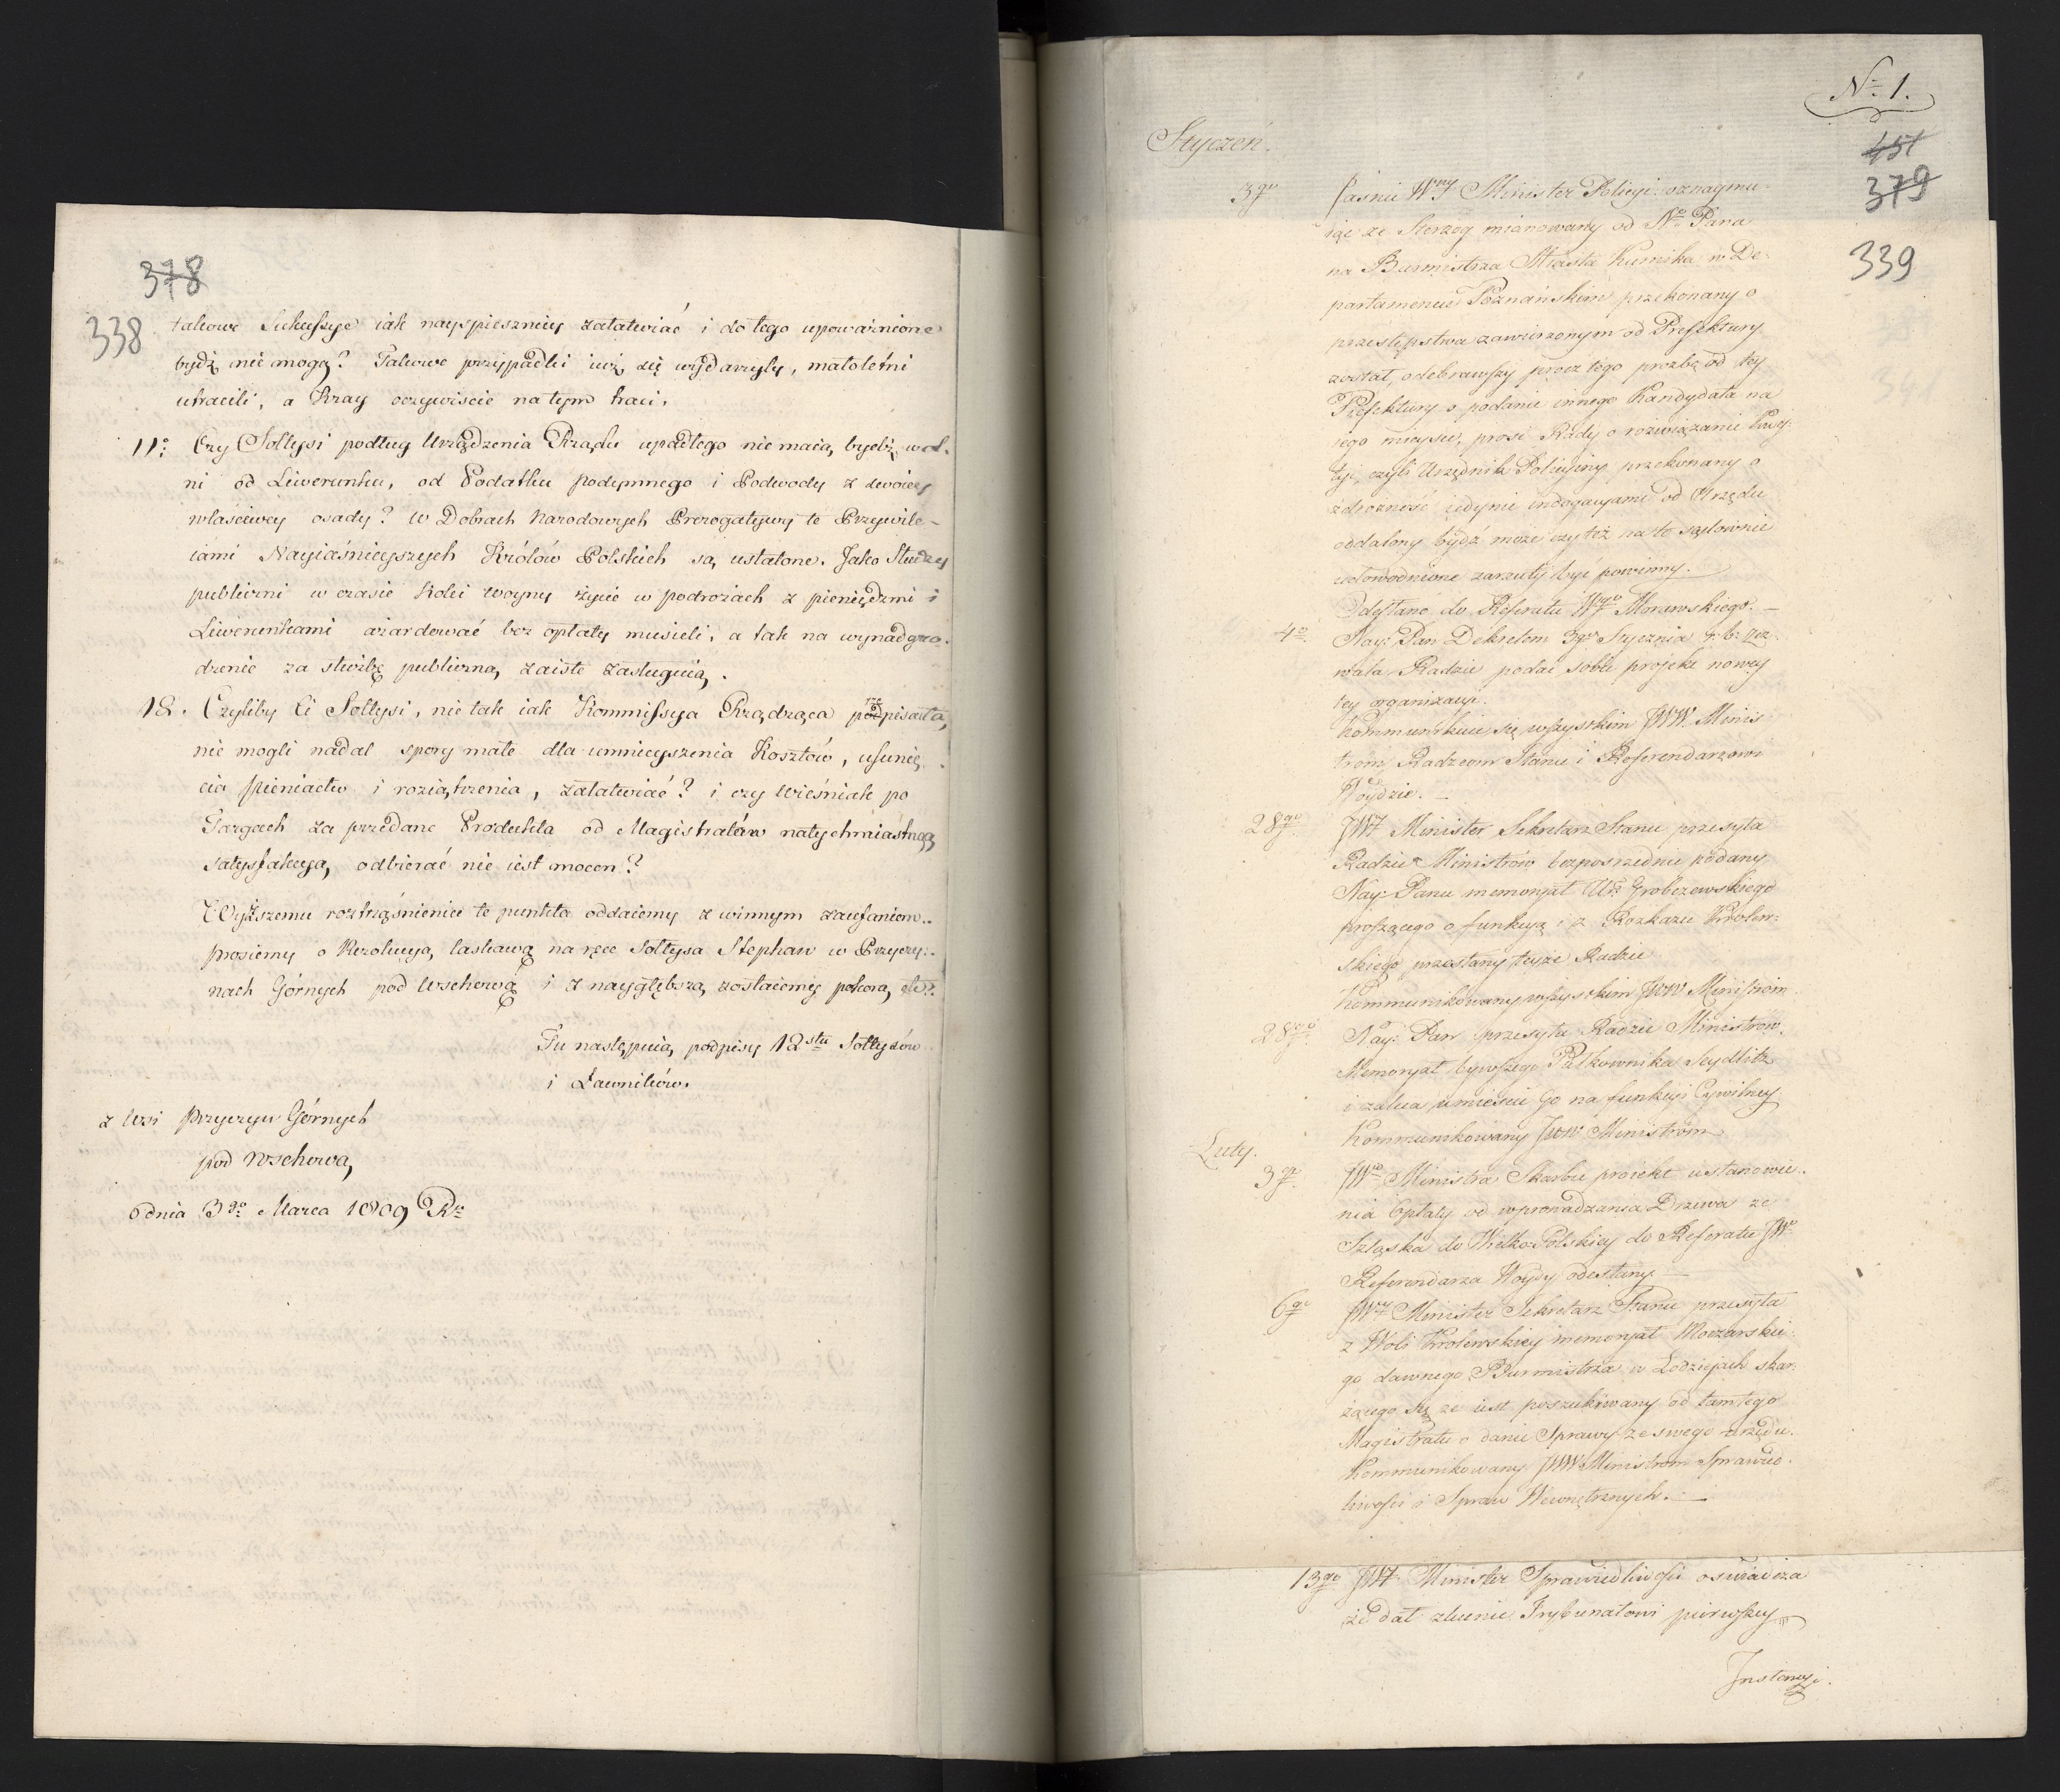 378
338
takowe Sukcessye iak nayspieszniey załatwiać i do tego upoważnione
bydź nie mogą? Takowe przypadki iuż się wydarzyły, małoletni
utracili, a Kray oczywiście na tym traci.
11o: Czy Sołtysi podług Urządzenia Rządu upadłego nie maią bydź wol-
ni od Liwerunku, od Podatku podymnego i Podwody z swoiey
właściwey osady? W Dobrach Narodowych Prerogatywy te Przywile-
iami Nayiaśnieyszych Królów Polskich są ustalone. Jako Słudzy
publiczni w czasie Kolei woyny życie w podrożach z pieniędzmi i
Liwerunkami azardować bez opłaty musieli, a tak na wynadgro-
dzenie za służbę publiczną zaiste zasługuią.
12. Czyliby Ci Sołtysi, nie tak iak Kommissya Rządząca przepisała,
nie mogli nadal spory małe dla umnieyszenia Kosztów, usunię-
cia pieniactw i roziątrzenia, załatwiać? i czy Wieśniak po
Targach za przedane Produkta od Magistratów natychmiastową
satysfakcyą odbierać nie iest mocen?
Wyższemu roztrząśnieniu te punkta oddaiemy z winnym zaufaniem..
prosiemy o Rezolucyą łaskawą na ręce Sołtysa Stephan w Przyczy:.
nach Górnych pod Wschową i z naygłębszą zostaiemy pokorą etc:.
Tu następuią podpisy 12stu Sołtysów
i Ławników.
z Wsi Przyczyn Górnych
pod Wschową
dnia 3go Marca 1809 Rk
No 1.
451
379
339
Styczeń.
3go Jaśnie Wny Minister Policyi oznaymu-
iąc ze Herzog mianowany od No Pana
na Burmistrza Miasta Kurnika w De-
partamencie Poznańskim przekonany o
przestępstwa zawierzonym od Prefektury
został, odebrawszy przez tego prozbę od tey
Prefektury o podanie innego Kandydata na
iego mieysce, prosi Rady o rozwiązanie Kwe-
styi, czyli Urzędnik Policyiny przekonany o
zdrożność iedynie indagacyami od Urzędu
oddalony bydź może czy też na to sądownie
udowodnione zarzuty być powinny.
Odesłano do Referatu Wgo Morawskiego. —
4o. Nay: Pan Dekretem 3go Stycznia r: b: wez-
wała Radzie podać sobie projekt nowey
tey organizacyi.
Kommunikuie się wszystkim JWW. Minis
trom Radzcom Stanu i Referendarzowi
Woydzie. —
28go. JWy Minister Sekretarz Stanu przesyła
Radzie Ministrów bezpośrzednie podany
Nay: Panu memoryał Ur: Grobczewskiego
proszącego o funkcyą i z Rozkazu Królew-
skiego przesłany teyże Radzie
Kommunikowany wszystkim JWW Ministrom
28go. Nay: Pan przesyła Radzie Ministrow.
Memoryał bywszego Pułkownika Seydlitz
i zaleca umieścić Go na funkcyi Cywilney.
Kommunikowany JWW Ministrom
Luty.
3go. JWo Ministra Skarbu projekt ustanowie-
nia Opłaty od wprowadzania Drzewa ze
Szląska do Wielko Polskiey do Referatu JWo
Referendarza Woydy odesłany. —
6go JWy Minister Sekretarz Stanu przesyła
z Woli Krolewskiey memoryał Moczarskie-
go dawnego Burmistrza w Łodziejach skar-
żącego się ze iest poszukiwany od tamtego
Magistratu o danie Sprawy ze swego urzędu.
Kommunikowany JWW Ministrom Sprawied-
liwości i Spraw Wewnętrznych. —
13go JWy Minister Sprawiedliwości oświadcza
że dał zlecenie Trybunałowi pierwszey
Instancyi.